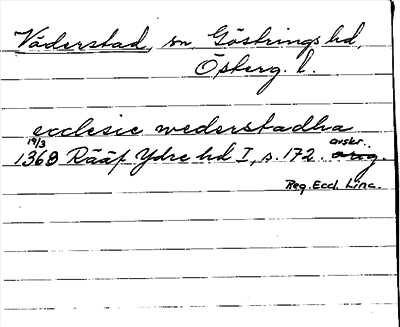 Väderstad, sn, Göstrings hd,
Österg. l.
ecclesie wederstadha
19/3 avskr.
1368 Rääf Ydre hd I, s. 172. orig.
Reg. Eccl. Linc.